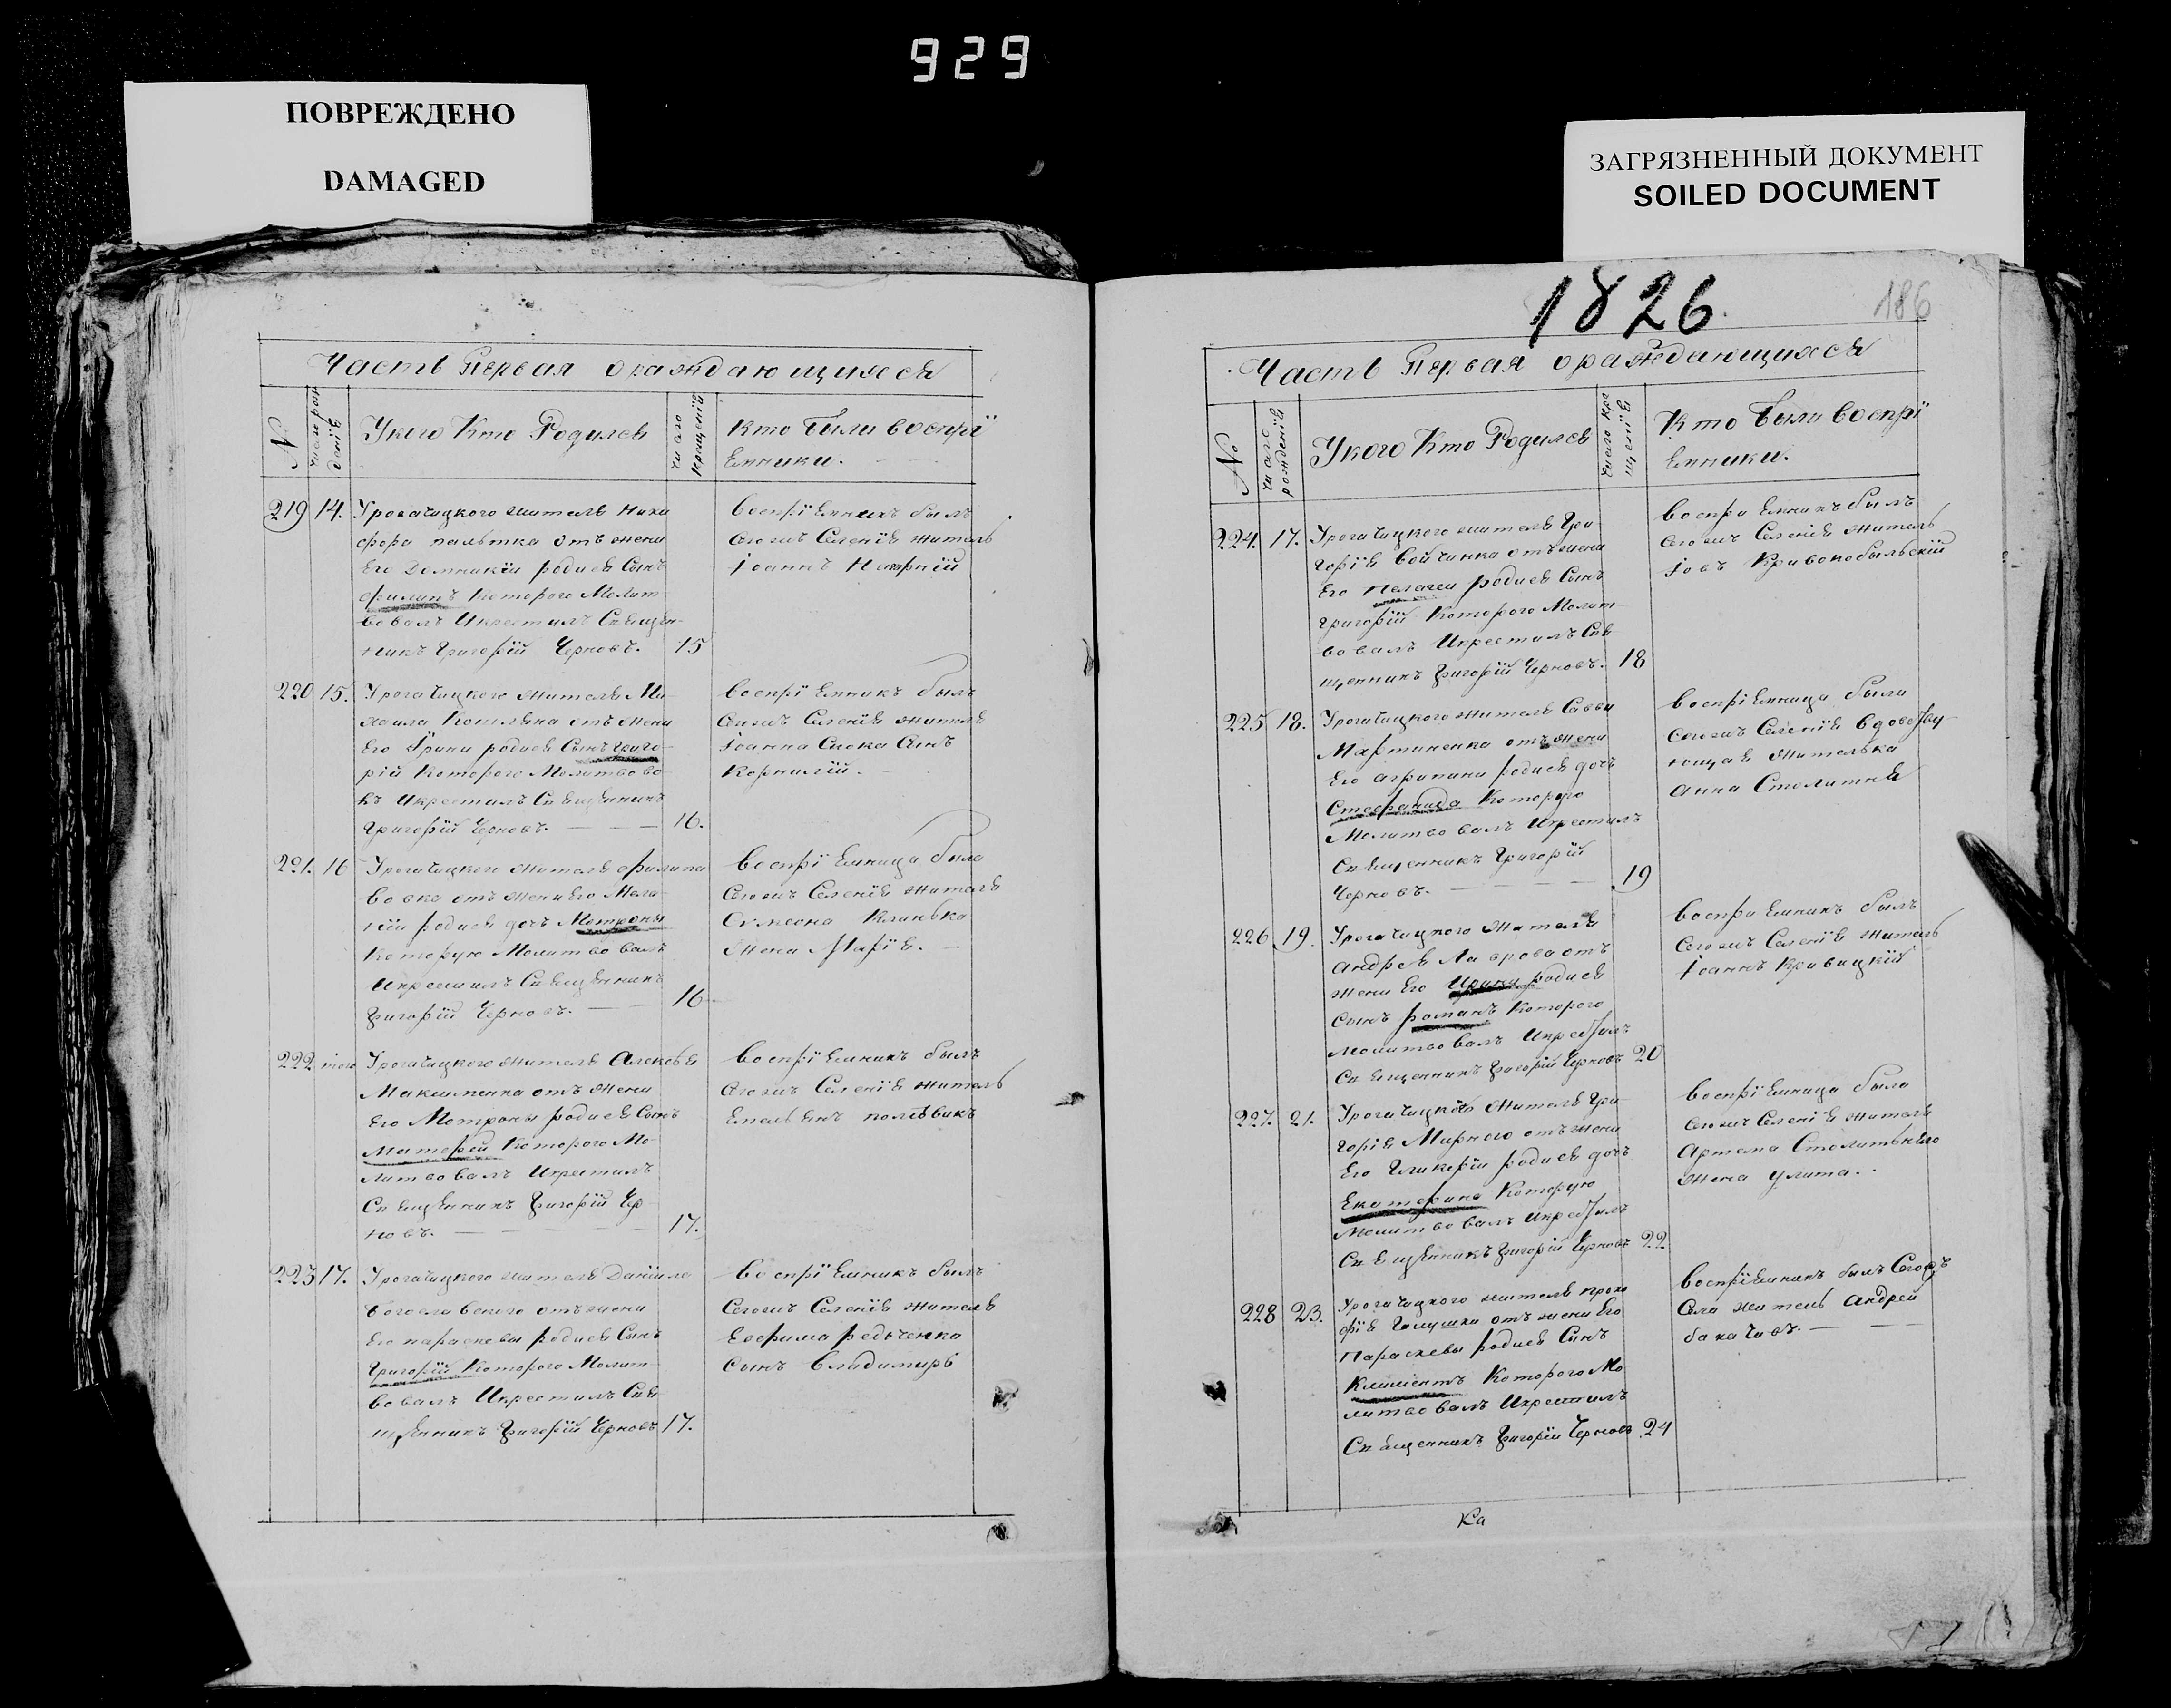 929
ПОВРЕЖДЕНО
DAMAGED
ЗАГРЯЗНЕННЫЙ ДОКУМЕНТ
SOILED DOCUMENT
Часть Первая ораждающихся
№
Укого Кто Родился
Кто были воспрі
емники.
219 14. Урогачицкого жителя Ники
фора отъ жени
его Домникіи родися Сынъ
Филипъ Которого Молит
вовалъ Икрестилъ Священ-
никъ Григорій Черновъ. 15
воспріемникъ былъ
Сегожъ Селенія житель
Іоаннъ
220 15. Урогачицкого жителя Ми-
хаила отъ жени
его Ірини родися Сынъ Григо-
рій Которого Молитвова
лъ Икрестилъ Священникъ
Григорій Черновъ. 16.
воспріемникъ былъ
Сегожъ Селенія жителя
Іоанна Сынъ
Корнилій.
221. 16 Урогачицкого жителя Филипа
отъ жени его Мела-
ніи родися дочь Матроны
Которую Молитвовалъ
Икрестилъ Священникъ
Григорій Черновъ. 16
воспріемница была
Сегожъ Селенія жителя
Жена Марія.
222 того Урогачицкого жителя Алексѣя
Максименка отъ жени
его Мотроны родися Сынъ
Матфей Которого Мо-
литвовалъ Икрестилъ
Священникъ Григорій Чер
новъ. 17.
воспріемникъ былъ
Сегожъ Селенія житель
Емельянъ
223 17. Урогачицкого жителя Даніила
Богославского отъ жени
его параскевы родися Сынъ
Григорій Которого Молит-
вовалъ Икрестилъ Свя
щенникъ Григорій Черновъ 17.
воспріемникъ былъ
Сегожъ Селенія жителя
Евфима редьченка
Сынъ Владимиръ
1826.
186
Часть Первая ораждающихся
№
число рожденія
Укого Кто Родился
число кре
щенія
Кто были воспрі
емники.
224. 17. Урогачицкого жителя Гри-
горія Войтинка отъ жени
его Пелагеи родися Сынъ
Григорій Которого Молит-
вовалъ Икрестилъ Свя
щенникъ Григорій Черновъ. 18
воспріемникъ былъ
Сегожъ Селенія житель
Іовъ Кривокобыльскій
225 18. Урогачицкого жителя Саввы
Мартиненка отъ жени
его агрипини родися дочь
Стефанида Которую
Молитвовалъ Икрестилъ
Священникъ Григорій
Черновъ. 19
воспріемница была
Сегожъ Селенія вдовству-
ющая жителька
анна Столитня
226 19. Урогачицкого жителя
андрея Лаврова отъ
жени Его Ирины родися
Сынъ романъ Которого
Молитвовалъ Икрестилъ
Священникъ Григорій Черновъ 20
воспріемникъ былъ
Сегожъ Селенія житель
Іоаннъ Кривицкій
227. 21. Урогачицкого жителя Гри-
горія Мирного отъ жени
Его Гликеріи родися дочь
Екатерина Которую
Молитвовалъ Икрестилъ
Священникъ Григорій Черновъ 22
воспріемница была
Сегожъ Селенія жителя
Артема Столитнего
жена улита.
228 23. Урогачицкого жителя проко
фія Галушки отъ жени Его
Параскевы родися Сынъ
Климентъ Которого Мо
литвовалъ Икрестилъ
Священникъ Григорій Черновъ 24
воспріемникъ былъ Сегожъ
Села житель Андрей
Ка